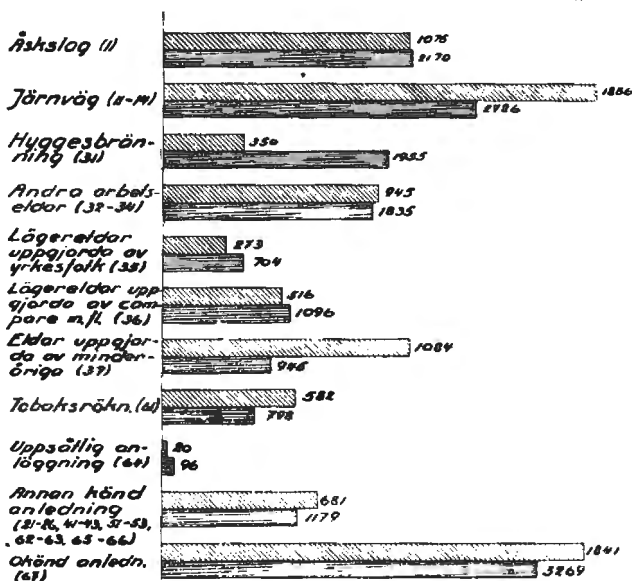 Åskslag (1)
1075
2170
Järnväg (11-14)
1886
Hyggesbrän-
ning (31)
350
1955
Andra arbets-
eldar (32-34)
945
1835
Lägereldar
uppgjorda av
yrkesfolk (35)
273
704
Lägereldar upp
gjorda av cam
pare m.fl. (36)
516
1096
Eldar uppgjor-
da av minder-
åriga (37)
1084
946
Tobaksrökn. (61)
582
798
Uppsåtlig an-
läggning (64)
20
96
Annan känd
anledning
(21-26, 41-43, 51-53,
62-63, 65-66)
681
1179
Okänd anledn.
(67)
1841
3269